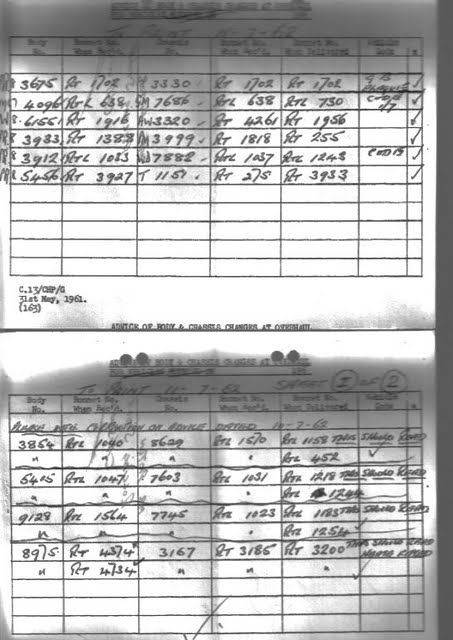 ADVICE OF BODY & CHASSIS CHANGES AT OVERHAUL
To PRINT 11-7-62
Body No. Bonnet No. When Rec'd. Chassis No. Bonnet No. When Rec'd. Bonnet No. When Delivered Vehicle Code
3675 Rt 1702 3330 Rt 1702 Rt 1702 ✓
4096 Rtl 638 7686 Rtl 638 Rtl 730 ✓
6155 Rt 1916 3320 Rt 4261 Rt 1956 ✓
3933 Rt 1388 3999 Rt 1818 Rt 255 ✓
3912 Rtl 1033 7882 Rtl 1037 Rtl 1243 ✓
5456 Rt 3927 1151 Rt 275 Rt 3933 ✓
C.13/CHP/G
31st May, 1961.
(163)
ADVICE OF BODY & CHASSIS CHANGES AT OVERHAUL
BODY & CHASSIS CHANGES AT
To PRINT 11-7-62 SHEET 1 OF 2
Body No. Bonnet No. When Rec'd. Chassis No. Bonnet No. When Rec'd. Bonnet No. When Delivered Vehicle Code
PLEASE NOTE CORRECTION ON ADVICE DATED 10-7-62
3854 Rtl 1040 8629 Rtl 1510 Rtl 1158 THIS SHOULD READ
" " " " Rtl 452 ✓
5405 Rtl 1047 7603 Rtl 1031 Rtl 1218 THIS SHOULD READ
" " " " Rtl 1244
9128 Rtl 1564 7745 Rtl 1023 Rtl 1183 THIS SHOULD READ
" " " " Rtl 1254 ✓
8975 RT 4374 3167 RT 3185 Rt 3200 THIS SHOULD READ
" RT 4734 " " " ✓